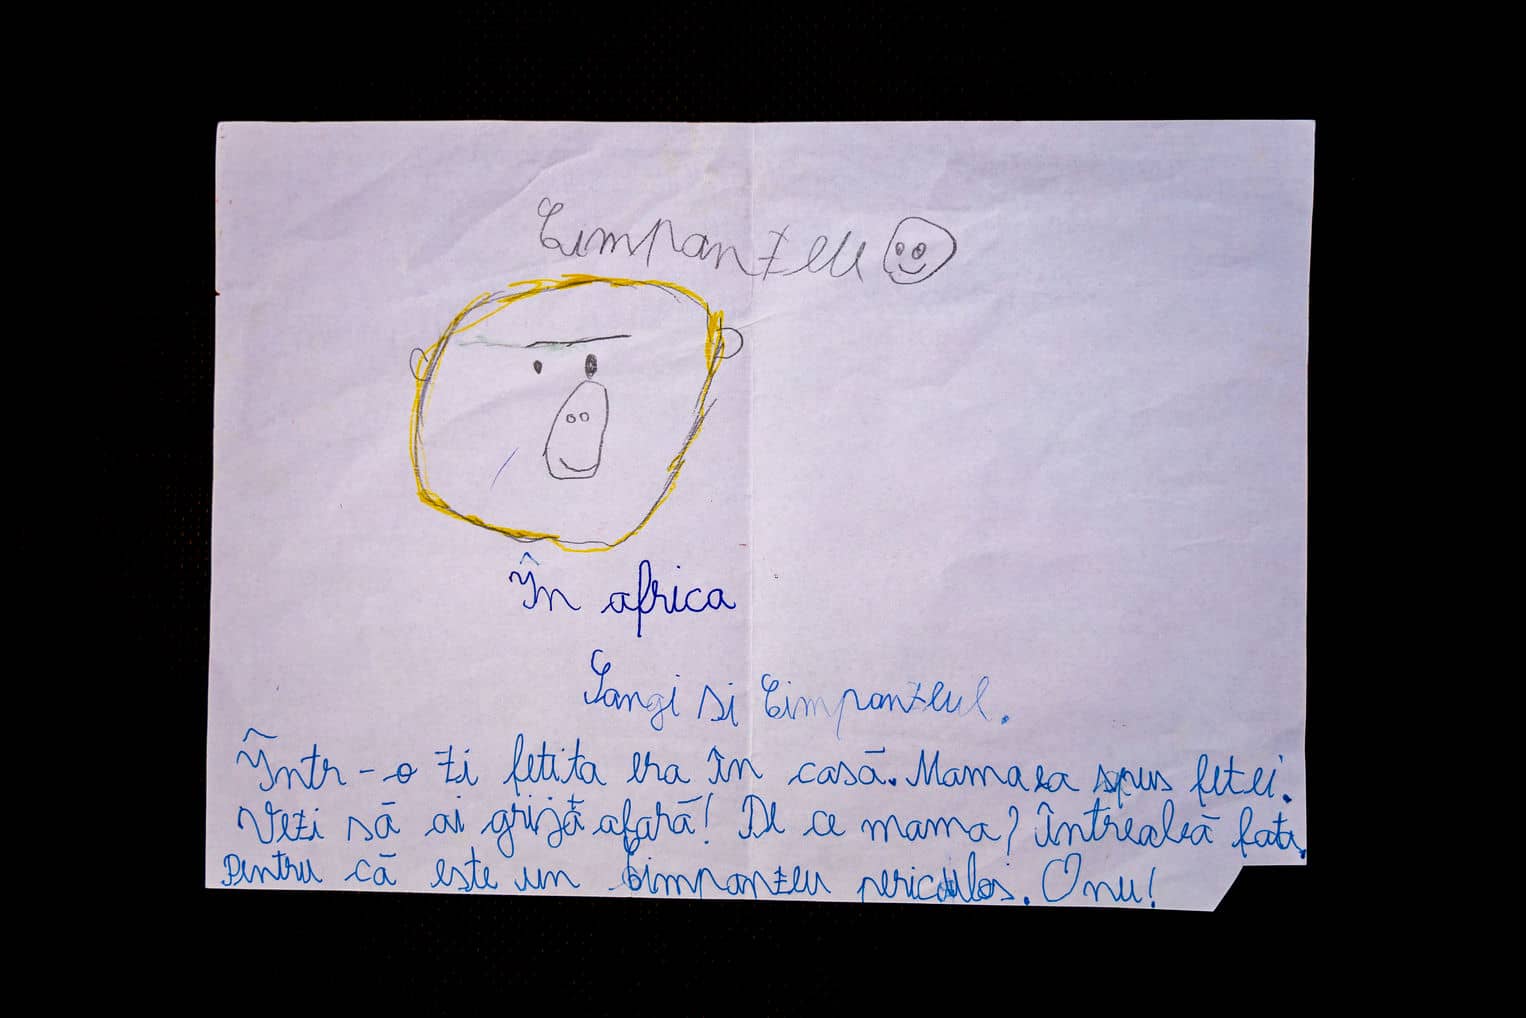 Cimpanzeu
În africa
Sangi si Cimpanzeul.
Într-o zi fetita era în casă. Mama ea spus fetei.
Vezi să ai grijă afară! De ce mama? Întrealeă fata.
Pentru că este un Cimpanzeu periculos. O nu!